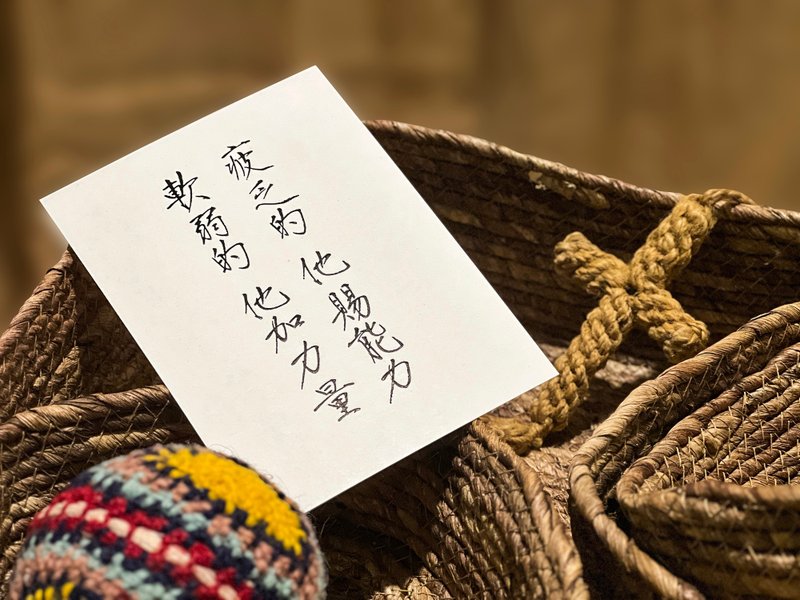 疲乏的 他賜能力
軟弱的 他加力量